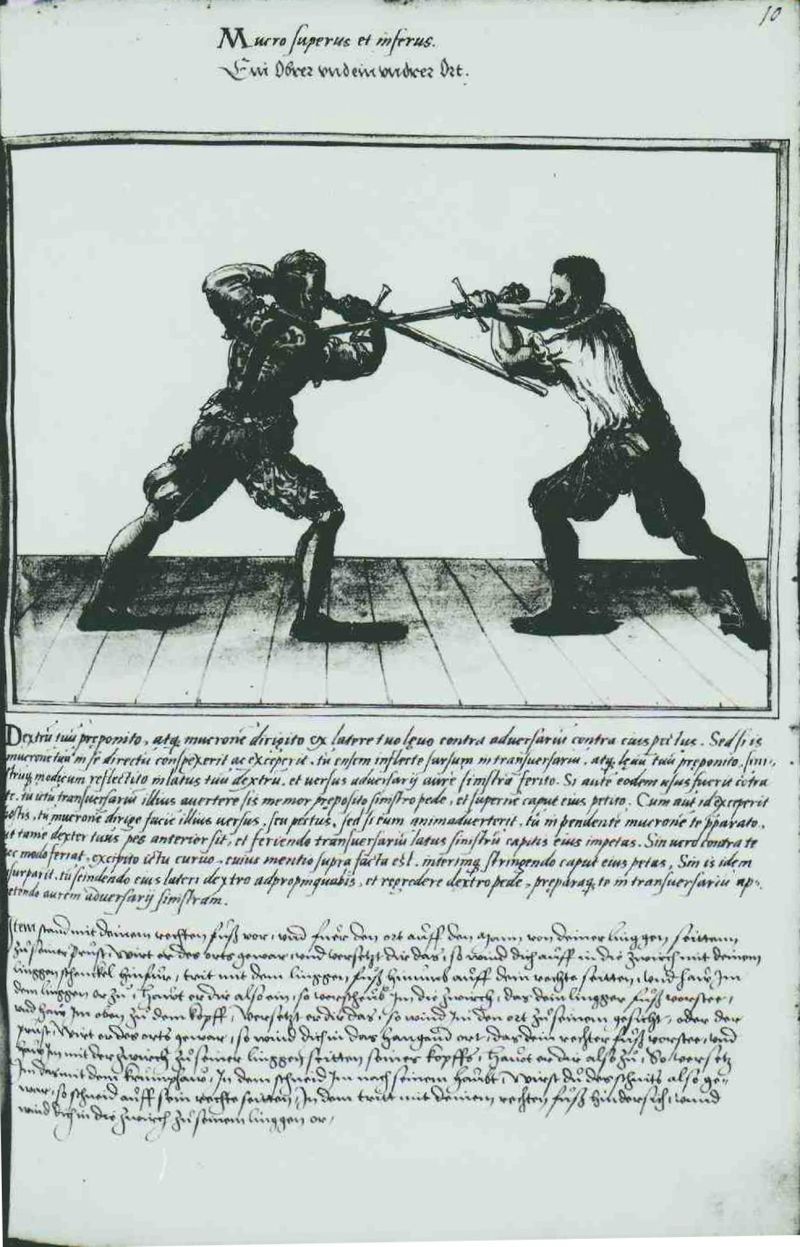 10
Mucro superus et inferus.
Ein Obrer vnd ein vndrer Ort.
Dextrū tuū preponito, atq, mucronē dirigito ex latere tuo lęuo contra adversariū contra eius pectus. Sed si is
mucronē tuū in se directū conspexerit ac exceperit, tu ensem inflecto sursum in transversariū, atq, lęuū tuū preponito, sini-
strūq, modicum reflectito in latus tuū dextrū, et versus adversarij aurē sinistrā ferito. Si autē eodem usus fuerit cōtra
te, tu ictū transversariū illius avertere sis memor preposito sinistro pede, et superne caput eius petito. Cum aut id exceperit
hostis, tu mucronē dirige faciē illius versus, seu pectus, sed si eum animadverterit, tu in pendente mucrone te pparato,
ut tamē dexter tuus pes anterior sit, et feriendo transversariū latus sinistrū capitis eius impetas. Sin vero contra te
ec modo feriat, excipito ictu curuo, cuius mentio supra facta est, interimq, stringendo caput eius petas, Sin is idem
surparit, tu scindendo eius lateri dextro adpropinquabis, et regredere dextro pede, preparaq, te in transversariū ap-
petendo aurem adversarij sinistram.
Item stand mit deinem rechten fuß vor, vnd fuer den ort auff den mann von deiner linggen seitten
zu seiner prust, Wirt er des orts gewar, vnd versetzt dir das, so wind dich auff in die zwirch mit deinem
linggen schenkel hinfür, trit mit dem linggen fuß hinumb auff dein rechte seitten, vnd haw Im
dem linggen or zu, Hawt er dir also ein, so verscheub Im die zwirch, das dein lingger fuß vorstee,
vnd haw Im oben zu dem kopff, versetzt er dir das, so wind Im den ort zu seinem gesicht, oder der
prust, Wirt er des orts gewar, so wind dich in das hangend ort, das dein rechter fuß vorstee, vnd
haw Im mit der zwirch zu seiner linggen seitten seines kopffs, Hawt er dir also zu, So versetz
Im das mit dem krumphaw, In dem schneid Im nach seinem haubt, Wirst du des schnits also ge-
war, so schneid auff sein rechte seitten, In dem tritt mit deinem rechten fuß hindersich, vnnd
wind dich in die zwirch zu seinem linggen or,